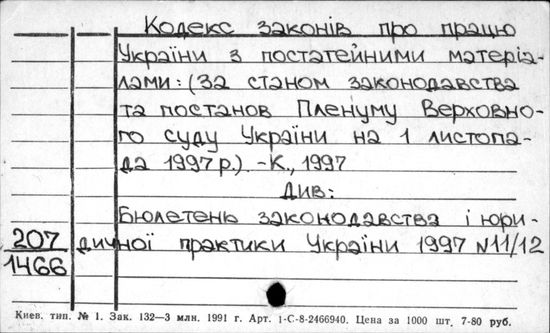 Кодекс законів про працю
України з постатейними матеріа-
лами: (За станом законодавства
та постанов Пленуму Верховно-
го суду України на 1 листопа-
да 1997 р.). -К., 1997
Див:
Бюлетень законодавства і юри-
дичної практики України 1997 N11/12
207
1466
Киев. тип. № 1. Зак. 132—3 млн. 1991 г. Арт. 1-С-8-2466940. Цена за 1000 шт. 7-80 руб.